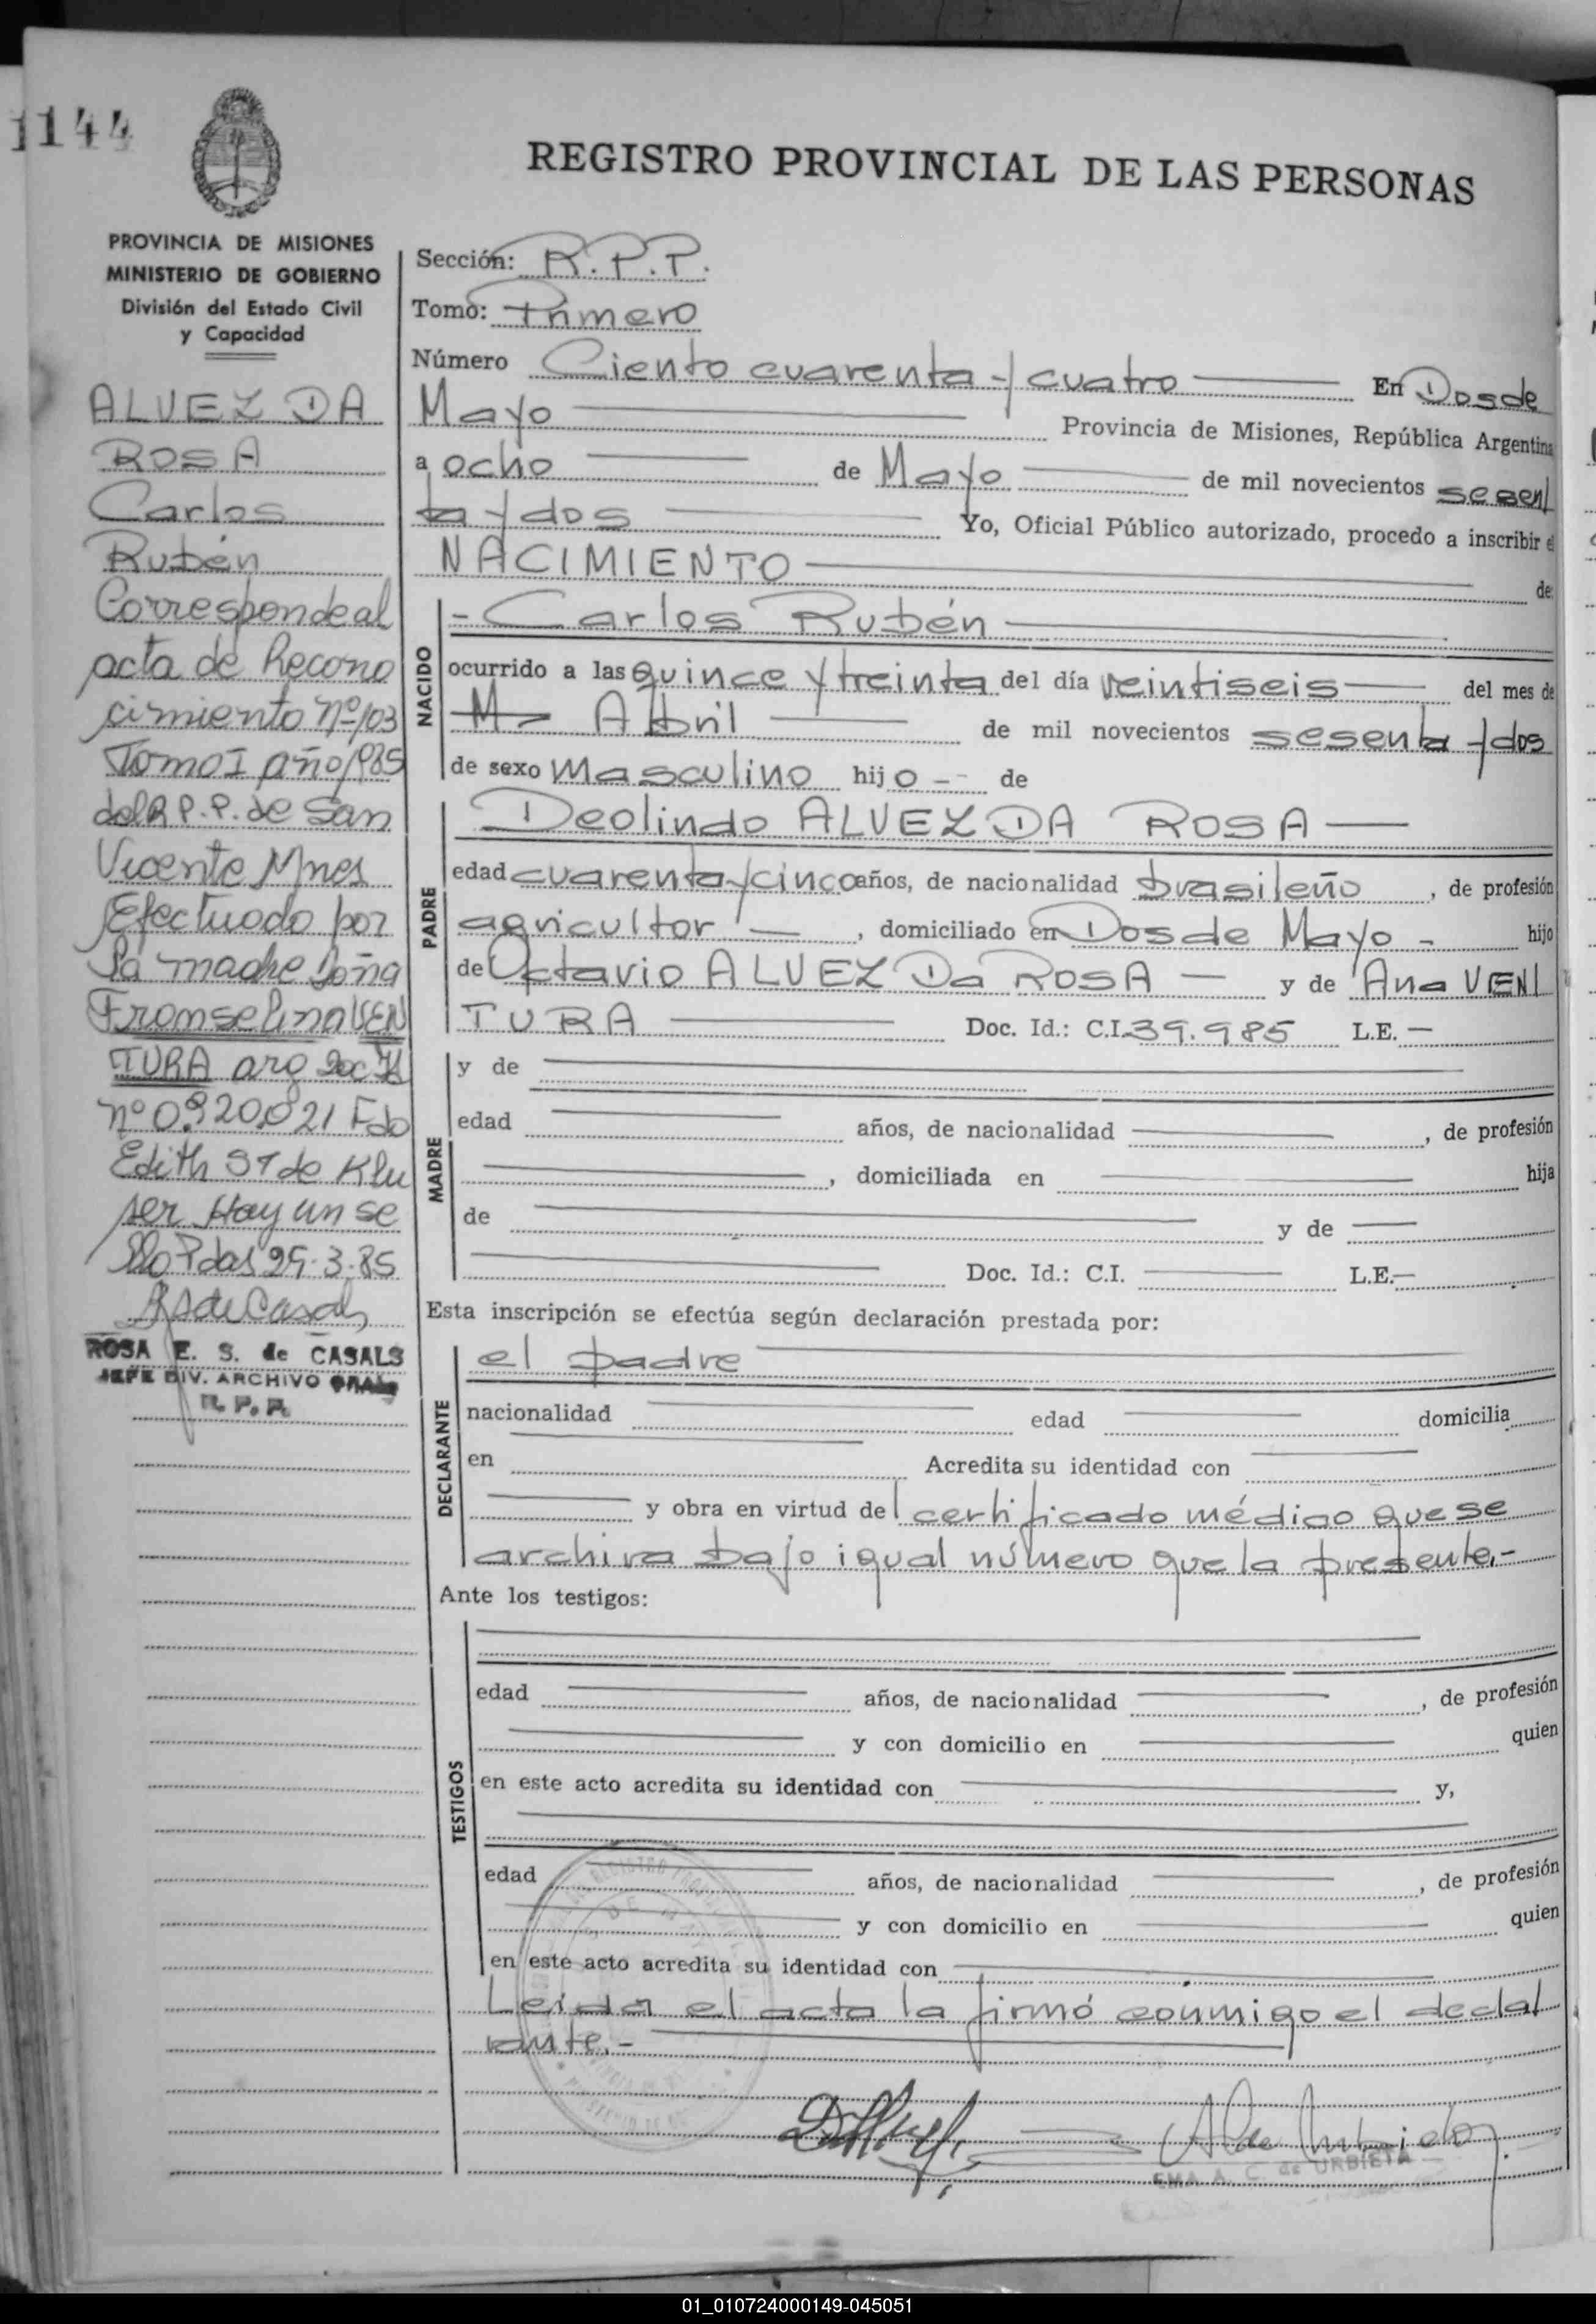 1144
REGISTRO PROVINCIAL DE LAS PERSONAS
PROVINCIA DE MISIONES
MINISTERIO DE GOBIERNO
División del Estado Civil
y Capacidad
ALVEZ DA
ROSA
Carlos
Rubén
Corresponde al
acta de Recono
cimiento Nº 103
Tomo I año 1985
del R.P.P. de San
Vicente Mnes
Efectuado por
la madre Doña
Fronselina VEN
TURA arg Doc
nº 0.920.021 Fdo
Edith ST de Klu
ser Hay un se
llo Pdas 29-3-85
RS de Casals
ROSA E. S. de CASALS
JEFE DIV. ARCHIVO GRAL
R. P. P.
Sección: R.P.P.
Tomo: Primero
Número Ciento cuarenta y cuatro En Dos de
Mayo Provincia de Misiones, República Argentina
a ocho de Mayo de mil novecientos sesen
ta y dos Yo, Oficial Público autorizado, procedo a inscribir el
NACIMIENTO de:
NACIDO
- Carlos Rubén
ocurrido a las quince y treinta del día veintiseis del mes de
M- Abril de mil novecientos sesenta y dos
de sexo masculino hijo -- de
PADRE
Deolindo ALVEZ DA ROSA
edad cuarenta y cinco años, de nacionalidad brasileño, de profesión
agricultor, domiciliado en Dos de Mayo - hijo
de Octavio ALVEZ Da ROSA y de Ana VEN
TURA Doc. Id.: C.I. 39.985 L.E. —
MADRE
y de
edad años, de nacionalidad , de profesión
, domiciliada en hija
de y de
Doc. Id.: C.I. L.E.—
Esta inscripción se efectúa según declaración prestada por:
DECLARANTE
el padre
nacionalidad edad domicilia
en Acredita su identidad con
y obra en virtud del certificado médico que se
archiva bajo igual número que la presente.-
Ante los testigos:
TESTIGOS
edad años, de nacionalidad , de profesión
y con domicilio en quien
en este acto acredita su identidad con y,
edad años, de nacionalidad , de profesión
y con domicilio en quien
en este acto acredita su identidad con
Leída el acta la firmó conmigo el decla
rante.-
EMA A. C. de URBIETA
01_010724000149-045051